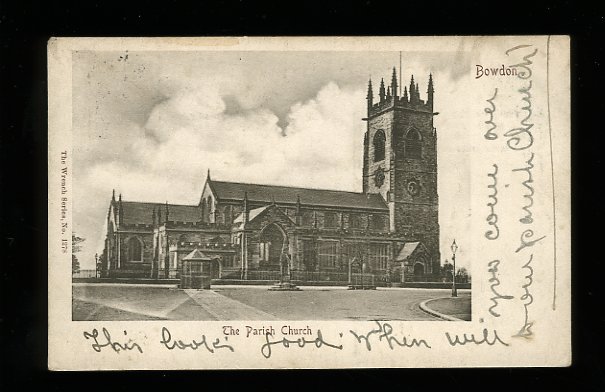 Bowdon.
The Wrench Series, No. 1278
The Parish Church
This looks good. When will
you come over
to our parish Church